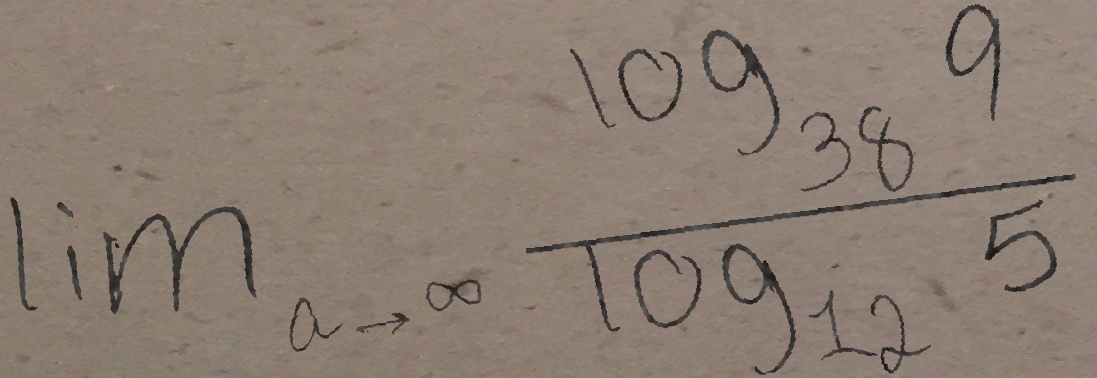 \lim_{a \to \infty} \frac{\log_{38} 9}{\log_{12} 5}